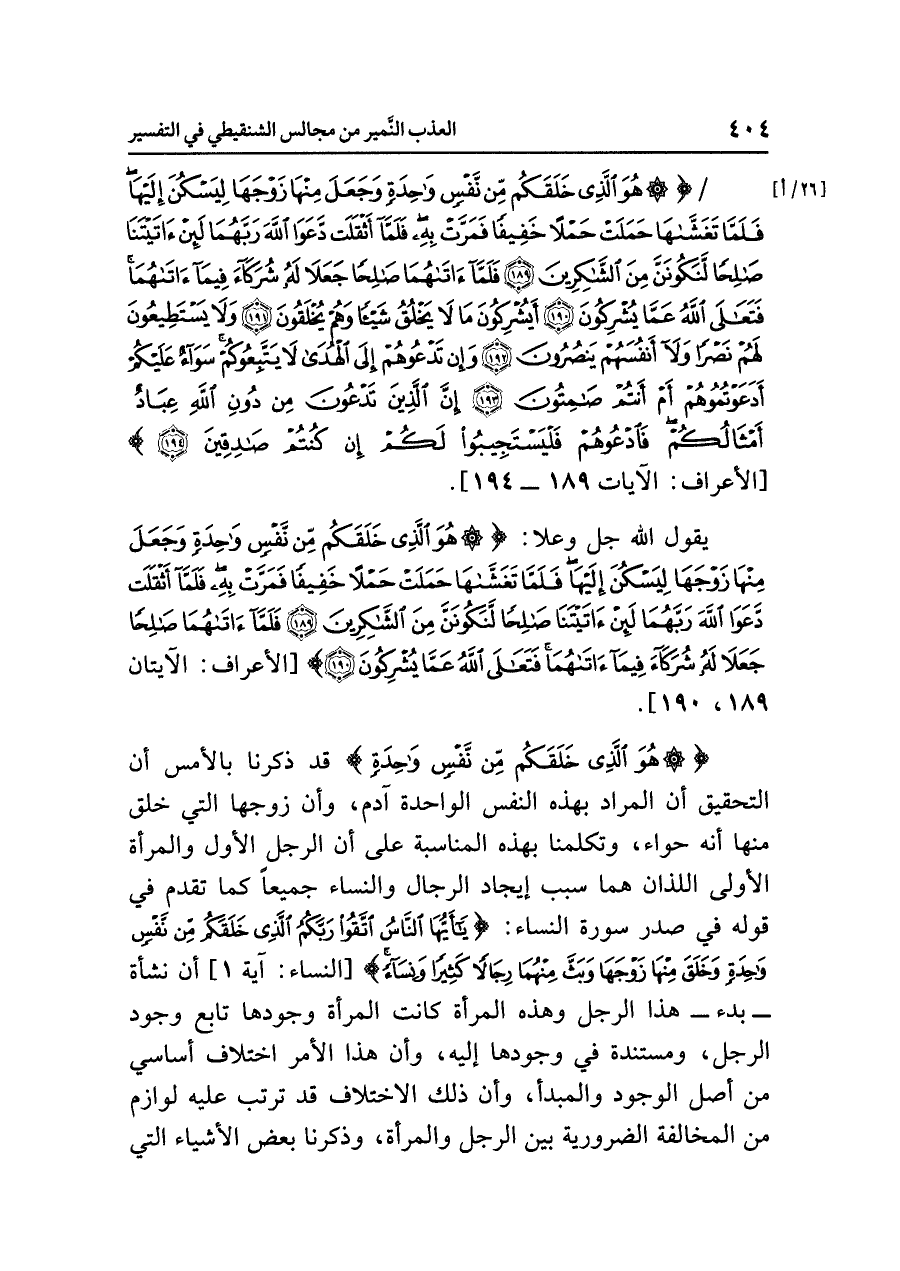 ٤٠٤ العذب النَّمير من مجالس الشنقيطي في التفسير
[٢٦/أ] / ﴿ ۞ هُوَ ٱلَّذِى خَلَقَكُم مِّن نَّفْسٍ وَٰحِدَةٍ وَجَعَلَ مِنْهَا زَوْجَهَا لِيَسْكُنَ إِلَيْهَا ۖ
فَلَمَّا تَغَشَّىٰهَا حَمَلَتْ حَمْلًا خَفِيفًا فَمَرَّتْ بِهِۦ ۖ فَلَمَّآ أَثْقَلَت دَّعَوَا ٱللَّهَ رَبَّهُمَا لَئِنْ ءَاتَيْتَنَا
صَٰلِحًا لَّنَكُونَنَّ مِنَ ٱلشَّٰكِرِينَ ١٨٩ فَلَمَّآ ءَاتَىٰهُمَا صَٰلِحًا جَعَلَا لَهُۥ شُرَكَآءَ فِيمَآ ءَاتَىٰهُمَا ۚ
فَتَعَٰلَى ٱللَّهُ عَمَّا يُشْرِكُونَ ١٩٠ أَيُشْرِكُونَ مَا لَا يَخْلُقُ شَيْـًٔا وَهُمْ يُخْلَقُونَ ١٩١ وَلَا يَسْتَطِيعُونَ
لَهُمْ نَصْرًا وَلَآ أَنفُسَهُمْ يَنصُرُونَ ١٩٢ وَإِن تَدْعُوهُمْ إِلَى ٱلْهُدَىٰ لَا يَتَّبِعُوكُمْ ۚ سَوَآءٌ عَلَيْكُمْ
أَدَعَوْتُمُوهُمْ أَمْ أَنتُمْ صَٰمِتُونَ ١٩٣ إِنَّ ٱلَّذِينَ تَدْعُونَ مِن دُونِ ٱللَّهِ عِبَادٌ
أَمْثَالُكُمْ ۖ فَٱدْعُوهُمْ فَلْيَسْتَجِيبُوا۟ لَكُمْ إِن كُنتُمْ صَٰدِقِينَ ١٩٤ ﴾
[الأعراف: الآيات ١٨٩ ــ ١٩٤].
يقول الله جل وعلا: ﴿ ۞ هُوَ ٱلَّذِى خَلَقَكُم مِّن نَّفْسٍ وَٰحِدَةٍ وَجَعَلَ
مِنْهَا زَوْجَهَا لِيَسْكُنَ إِلَيْهَا ۖ فَلَمَّا تَغَشَّىٰهَا حَمَلَتْ حَمْلًا خَفِيفًا فَمَرَّتْ بِهِۦ ۖ فَلَمَّآ أَثْقَلَت
دَّعَوَا ٱللَّهَ رَبَّهُمَا لَئِنْ ءَاتَيْتَنَا صَٰلِحًا لَّنَكُونَنَّ مِنَ ٱلشَّٰكِرِينَ ١٨٩ فَلَمَّآ ءَاتَىٰهُمَا صَٰلِحًا
جَعَلَا لَهُۥ شُرَكَآءَ فِيمَآ ءَاتَىٰهُمَا ۚ فَتَعَٰلَى ٱللَّهُ عَمَّا يُشْرِكُونَ ١٩٠﴾ [الأعراف: الآيتان
١٨٩، ١٩٠].
﴿ ۞ هُوَ ٱلَّذِى خَلَقَكُم مِّن نَّفْسٍ وَٰحِدَةٍ ﴾ قد ذكرنا بالأمس أن
التحقيق أن المراد بهذه النفس الواحدة آدم، وأن زوجها التي خلق
منها أنه حواء، وتكلمنا بهذه المناسبة على أن الرجل الأول والمرأة
الأولى اللذان هما سبب إيجاد الرجال والنساء جميعاً كما تقدم في
قوله في صدر سورة النساء: ﴿ يَٰٓأَيُّهَا ٱلنَّاسُ ٱتَّقُوا۟ رَبَّكُمُ ٱلَّذِى خَلَقَكُم مِّن نَّفْسٍ
وَٰحِدَةٍ وَخَلَقَ مِنْهَا زَوْجَهَا وَبَثَّ مِنْهُمَا رِجَالًا كَثِيرًا وَنِسَآءً ۚ﴾ [النساء: آية ١] أن نشأة
ــ بدء ــ هذا الرجل وهذه المرأة كانت المرأة وجودها تابع وجود
الرجل، ومستندة في وجودها إليه، وأن هذا الأمر اختلاف أساسي
من أصل الوجود والمبدأ، وأن ذلك الاختلاف قد ترتب عليه لوازم
من المخالفة الضرورية بين الرجل والمرأة، وذكرنا بعض الأشياء التي